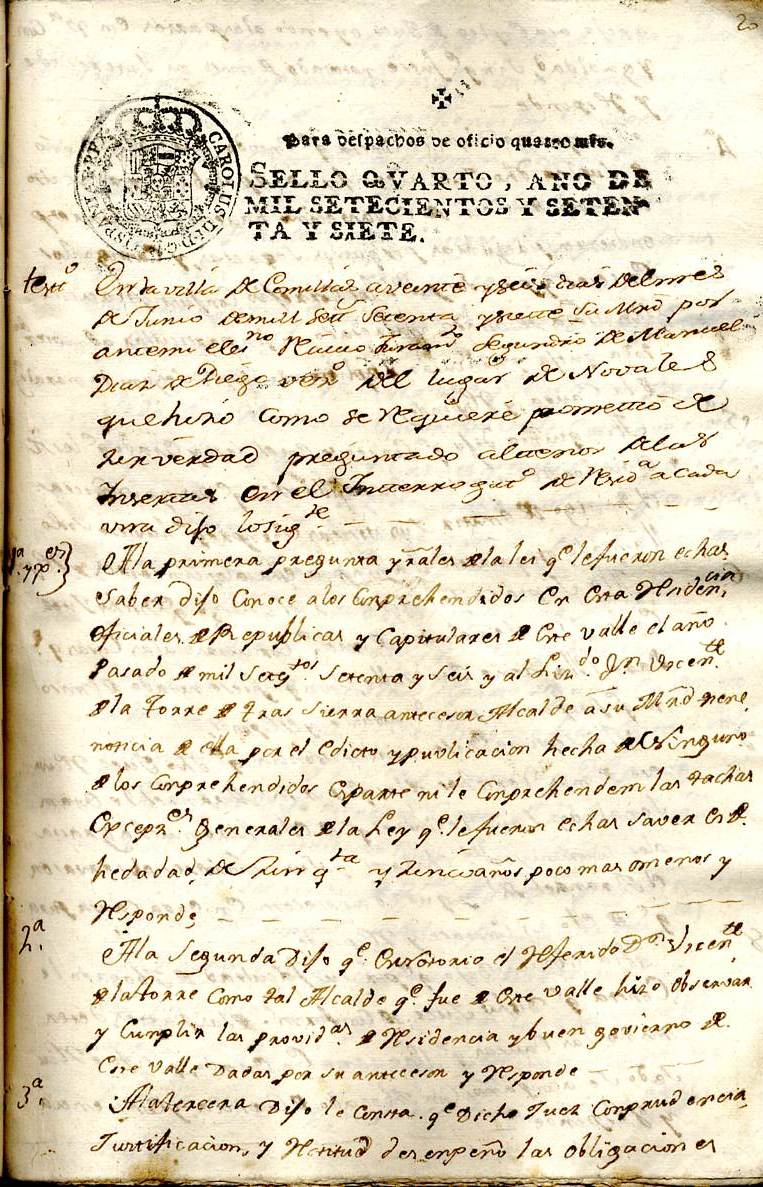 20
Para despachos de oficio quatro mrs.
SELLO QVARTO, AÑO DE
MIL SETECIENTOS Y SETEN-
TA Y SIETE.
CAROLUS III D G HISPANIAR REX
testo
En la villa de Comillas a veinte y seis dias del mes
de Junio de mill sett.s setenta y siete su Mrd por
ante mi el esno Reciuio Juram.to segun dro de Manuel
Diaz de Diego vezo del lugar de Novales
que hizo como se requiere prometio de
dezir verdad preguntado al tenor de las
Insertas en el Interrogato de Resida a cada
una dijo lo sigte
1a y pes
A la primera pregunta y rales de la lei qe le fueron echas
saber Dijo Conoce a los Conprehendidos en esta Residencia,
oficiales de Republicas y Capitulares de este valle el año
Pasado de mil Setztos setenta y seis y al Lizdo Dn Vicente
de la Torre de Tras sierra antecesor Alcalde a su Mrd tiene
noticia de ella por el edicto y publicacion hecha de Ninguno
de los Conprehendidos es parte ni le Conprehenden las tachas
Excepzes Generales de la Ley qe le fueron echas saver es de
hedadad, de Zinqta y Zinco años poco mas o menos y
Responde
2a
A la Segunda Dijo qe es Notorio el Referido Dn Vicente
de la torre Como tal Alcalde qe fue de este valle hizo observar
y Cunplir las providas de Residencia y buen govierno de
Este valle Dadas por su antecesor y Responde
3a
A la tercera Dijo le Consta qe Dicho Juez Con prudencia,
Justificacion, y Rectitud desenpeño las obligaciones